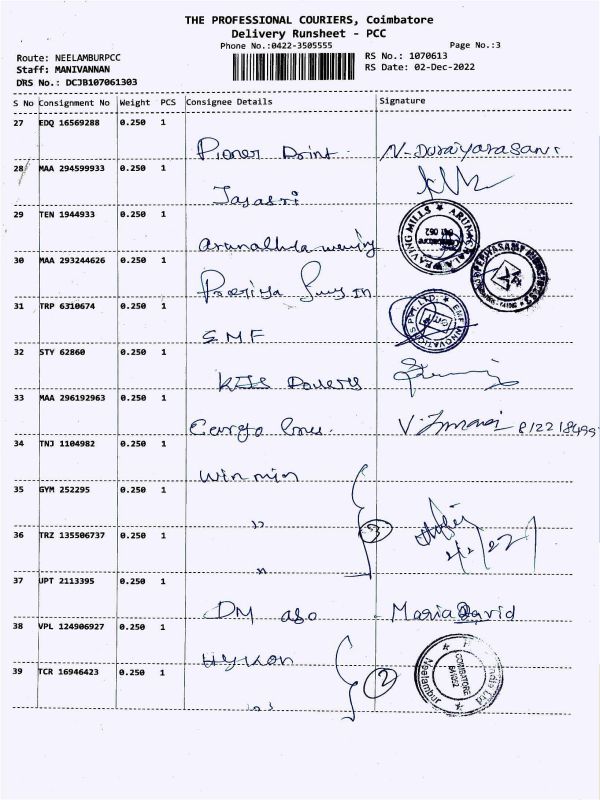 THE PROFESSIONAL COURIERS, Coimbatore
Delivery Runsheet - PCC
Phone No.:0422-3505555 Page No.:3
Route: NEELAMBURPCC RS No.: 1070613
Staff: MANIVANNAN RS Date: 02-Dec-2022
DRS No.: DCJB107061303
S No Consignment No Weight PCS Consignee Details Signature
27 EDQ 16569288 0.250 1
Pioner Print. N. Duraiyarasan
28 MAA 294599933 0.250 1
Jayasri
29 TEN 1944933 0.250 1
30 MAA 293244626 0.250 1
31 TRP 6310674 0.250 1
EMF
32 STY 62860 0.250 1
33 MAA 296192963 0.250 1
812218499
34 TNJ 1104982 0.250 1
win min
35 GYM 252295 0.250 1
"
36 TRZ 135506737 0.250 1 3
"
37 UPT 2113395 0.250 1
DM aso - Maria David
38 VPL 124906927 0.250 1
Hykon
39 TCR 16946423 0.250 1 2
Neelambur COIMBATORE
"